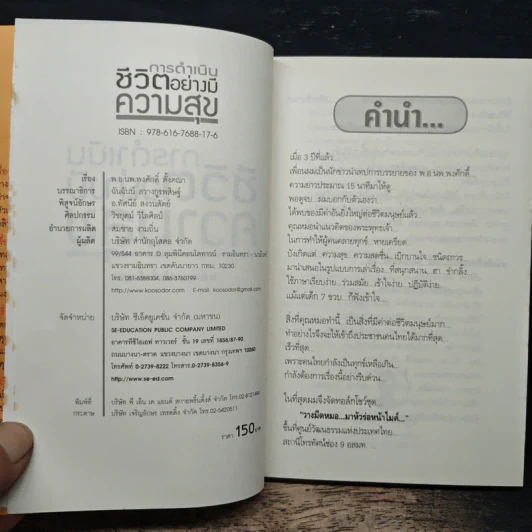 การดำเนิน
ชีวิตอย่างมี
ความสุข
ISBN : 978-616-7688-17-6
เรื่อง พ.อ.นพ.พงศ์ศักดิ์ ตั้งคณา
บรรณาธิการ
พิสูจน์อักษร อ.ทัศนีย์ สงวนสัตย์
ศิลปกรรม วิชยุตม์ วิโลศิลป์
อำนวยการผลิต สมชาย งามถิ่น
ผู้ผลิต บริษัท สำนักกุโสดอ จำกัด
99/544 อาคาร D ลุมพินีคอนโดทาวน์ รามอินทรา-
แขวงรามอินทรา เขตคันนายาว กทม. 10230
โทร. 081-6388004, 086-3760199
http://www.koosodor.com E-mail. koosodor@gmail.com
จัดจำหน่าย บริษัท ซีเอ็ดยูเคชั่น จำกัด (มหาชน)
SE-EDUCATION PUBLIC COMPANY LIMITED
อาคารทีซีไอเอฟ ทาวเวอร์ ชั้น 19 เลขที่ 1858/87-90
ถนนบางนา-ตราด แขวงบางนา เขตบางนา กรุงเทพฯ 10260
โทรศัพท์ 0-2739-8222 โทรสาร 0-2739-8356-9
http://www.se-ed.com
พิมพ์ที่ บริษัท พี เอ็น เค แอนด์ สกายพริ้นติ้งส์ จำกัด
กระดาษ บริษัท เจริญอักษร เทรดดิ้ง จำกัด โทร.02-5420511
ราคา 150 บาท
คำนำ...
เมื่อ 3 ปีที่แล้ว
เพื่อนผมเป็นนักข่าวนำเทปการบรรยายของ พ.อ.นพ.พงศ์ศักดิ์...
ความยาวประมาณ 15 นาทีมาให้ดู
พอดูจบ..ผมบอกกับตัวเองว่า
ได้พบของมีค่าอันยิ่งใหญ่ต่อชีวิตมนุษย์แล้ว...
คุณหมอนำแนวคิดของพระพุทธเจ้า...
ในการทำให้ผู้คนคลายทุกข์..หายเครียด..
บังเกิดแต่..ความสุข..ความสดชื่น..เบิกบานใจ..ชนิดถาวร
มานำเสนอในรูปแบบการเล่าเรื่อง..ที่สนุกสนาน..ฮา..ขำกลิ้ง
ใช้ภาษาเรียบง่าย..ร่วมสมัย..เข้าใจง่าย..ปฏิบัติง่าย..
แม้แต่เด็ก 7 ขวบ..ก็ฟังเข้าใจ...
สิ่งที่คุณหมอทำนี้..เป็นสิ่งที่มีค่าต่อชีวิตมนุษย์มาก...
ทำอย่างไรจึงจะให้เข้าถึงประชาชนคนไทยได้มากที่สุด..
เร็วที่สุด...
เพราะคนไทยกำลังเป็นทุกข์เหลือเกิน..
กำลังต้องการเรื่องนี้อย่างรีบด่วน..
ในที่สุดผมจึงจัดทอล์กโชว์ชุด
"วางมีดหมอ...มาหัวร่อหน้าไมค์..."
ขึ้นที่ศูนย์วัฒนธรรมแห่งประเทศไทย...
สถานีโทรทัศน์ช่อง 9 อสมท. ...